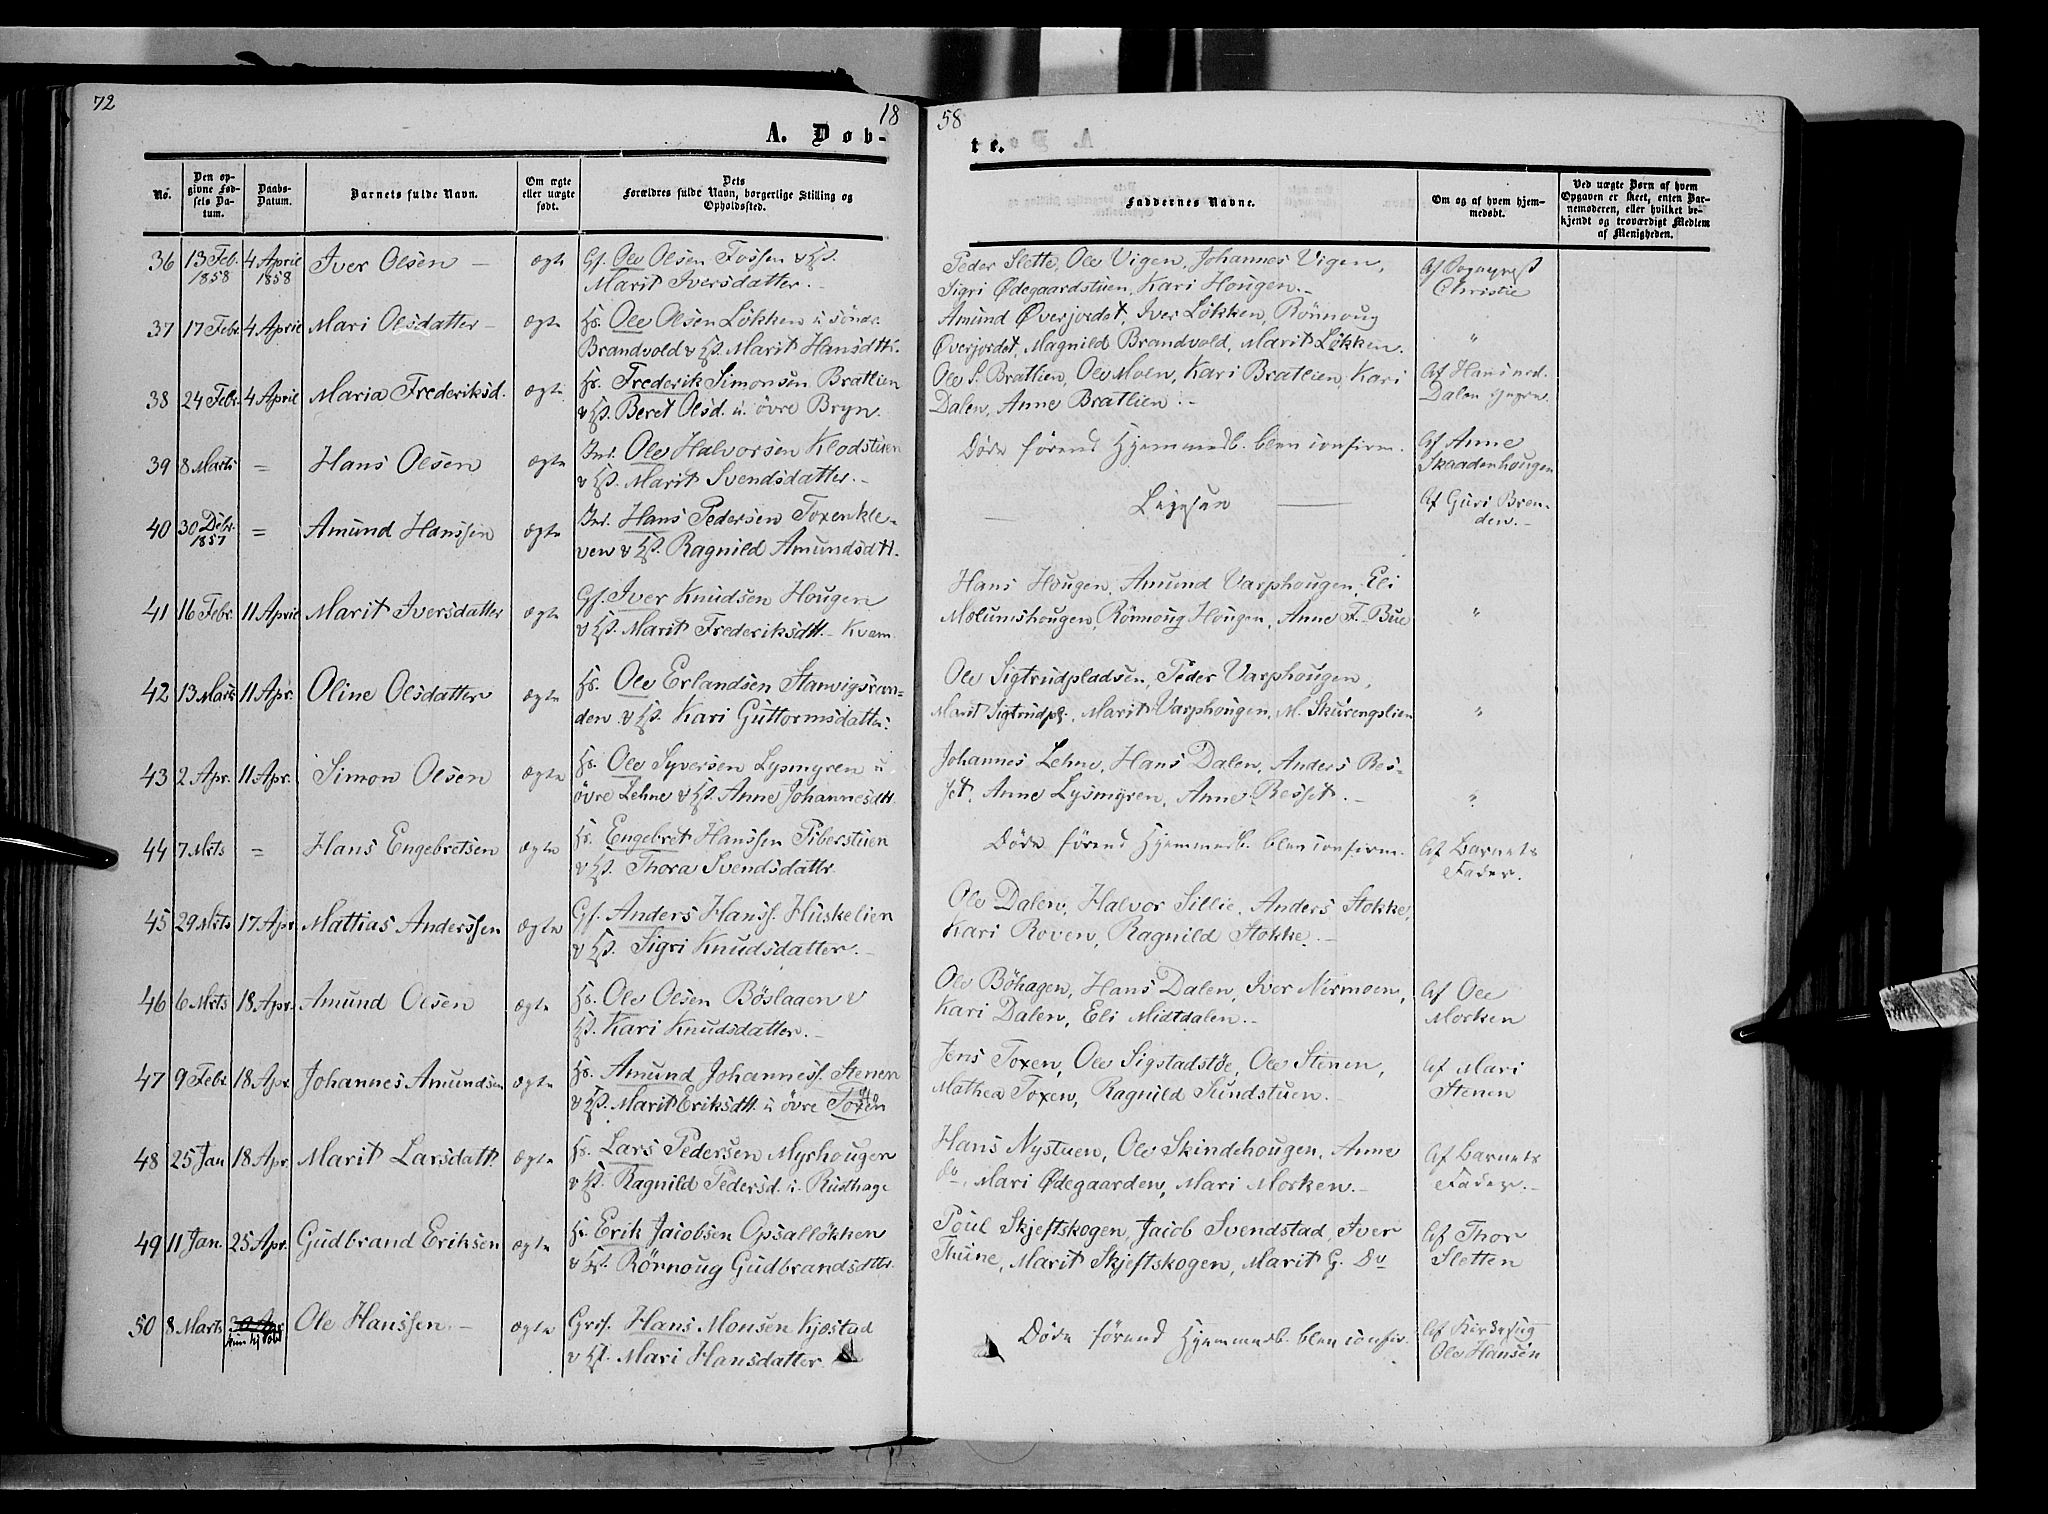 72
18
58
A. Døb-
te.
No.
Den op-
givne Fød-
sels Da-
tum.
Daabs-
Datum.
Barnets fulde Navn.
Om ægte
eller uægte
født.
Dets
Forældres fulde Navn, borgerlige Stilling og
Opholdssted.
Faddernes Navne.
Om og af hvem hjem-
medøbt.
Ved uægte Børn af hvem
Opgaven er skeet, enten Bar-
nemoderen, eller hvilket be-
kjendt og troværdigt Medlem
af Menigheden.
36 13 Feb. 1858 4 April 1858 Iver Olsen – ægte Gf. Ole Olsen Fossen v Hst.
Marit Iversdatter. –
Peder Slette, Ole Vigen, Johannes Vigen,
Sigri Ødegaardstuen, Kari Hougen. –
Af Sognprest
Christie
37 17 Febr 4 April Mari Olsdatter – ægte Hs. Ole Olsen Løkken u søndr.
Brandvold v Hst. Marit Hansdttr.
Amund Øverjordet, Iver Løkken, Rönnoug
Øverjordet, Magnild Brandvold, Marit Løkken.
"
38 24 Febr 4 April Maria Frederiksd. ægte Hs. Frederik Simonsen Bratlien
v Hst. Beret Olsd. u. övre Bryn.
Ole S. Bratlien, Ole Moen, Kari Bratlien, Kari
Dalen, Anne Bratlien. –
Af Hans ned.
Dalen
39 8 Marts = Hans Olsen ægte Inr. Ole Halvorsen Klodstuen
v Hst. Marit Svendsdatter. –
Døde førend Hjemmedb. blev confirm.
Af Anne
Skaadenhougen
40 30 Debr. 1857 = Amund Hanssen ægte Inr. Hans Pedersen Toxenkle-
ven v Hst. Ragnild Amundsdtt.
Af Guri Bren-
den. –
41 16 Febr. 11 April Marit Iversdatter ægte Gf. Iver Knudsen Hougen
v Hst. Marit Frederiksdtt. – Kvam
Hans Hougen, Amund Varphougen, Eli
Molumshougen, Rönnoug Hougen, Anne F. Bue
"
42 13 Marts 11 Apr. Oline Olsdatter ægte Hs. Ole Erlandsen Stamvigsren-
den. v Hst. Kari Guttormsdatter.
Ole Sigtrudpladsen, Peder Varphougen,
Marit Sigtrudpl., Marit Varphougen, M. Skurengslien
"
43 2 Apr. 11 Apr. Simon Olsen ægte Hs. Ole Syversen Lysmyren u
övre Lehne v Hst. Anne Johannesdtt.
Johannes Lehne, Hans Dalen, Anders Res-
set, Anne Lysmyren, Anne Resset. –
"
44 7 Mrts = Hans Engebretsen ægte Hs. Engebret Hanssen Piberstuen
v Hst. Thora Svendsdattr.
Døde førend Hjemmedb. blev confirm.
Af Barnets
Fader.
45 29 Mrts 17 Apr. Mattias Anderssen ægte Gf. Anders Hanss. Huskelien
v Hst. Sigri Knudsdatter. –
Ole Dalen, Halvor Sillie, Anders Stokke,
Kari Roven, Ragnild Stokke. –
46 6 Mrts 18 Apr. Amund Olsen ægte Hs. Ole Olsen Böslaaen v
Hst. Kari Knudsdatter. –
Ole Böhagen, Hans Dalen, Iver Nermoen,
Kari Dalen, Eli Midtdalen. –
Af Ole
Morken
47 9 Febr 18 Apr. Johannes Amundsen ægte Hs. Amund Johanness. Stenen
v Hst. Marit Eriksdtt. u övre Toxen
Jens Toxen, Ole Sigstadstöe, Ole Stenen,
Mathea Toxen, Ragnild Sundstuen. –
Af Mari
Stenen
48 25 Jan 18 Apr. Marit Larsdatt. ægte Hs. Lars Pedersen Myrhougen
v Hst. Ragnild Pedersd. u. Rusthage
Hans Nystuen, Ole Skindehougen, Anne
do, Mari Ødegaarden, Mari Morken. –
Af Barnets
Fader. –
49 11 Jan. 25 Apr. Gudbrand Eriksen ægte Hs. Erik Jacobsen Opsalløkken
v Hst. Rönnoug Gudbrandsdttr.
Poul Skjeftskogen, Jacob Svendstad, Iver
Thune, Marit Skjeftskogen, Marit G. Do
Af Thor
Sletten
50 8 Marts Ole Hanssen. – ægte Grf. Hans Monsen Kjøstad
v Hst. Mari Hansdatter.
Døde førend Hjemmedb. blev confir.
Af
Ole Hansen